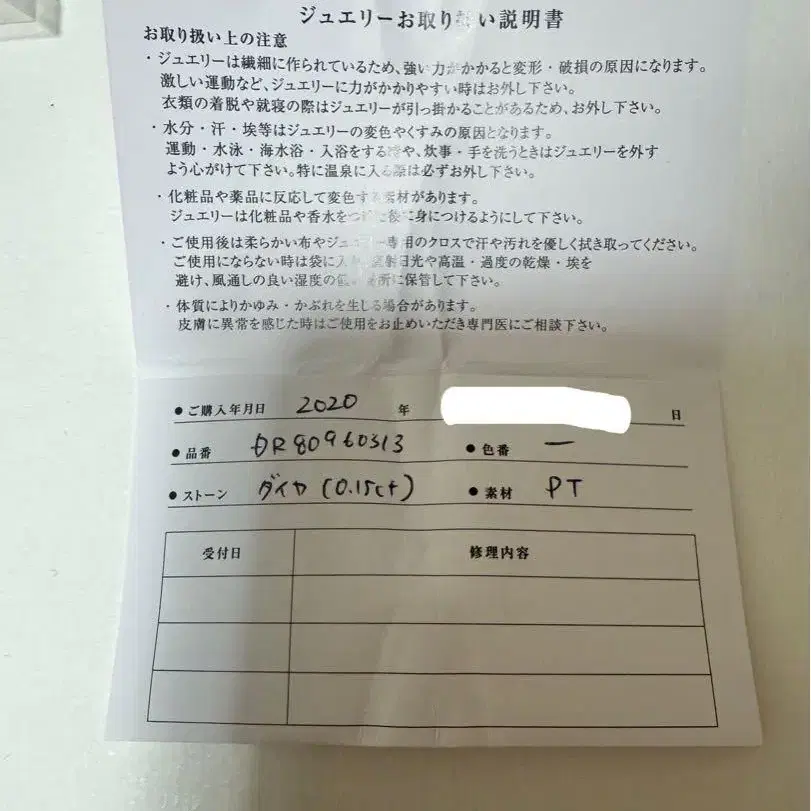 ジュエリーお取り扱い説明書
お取り扱い上の注意
・ジュエリーは繊細に作られているため、強い力がかかると変形・破損の原因になります。
激しい運動など、ジュエリーに力がかかりやすい時はお外し下さい。
衣類の着脱や就寝の際はジュエリーが引っ掛かることがあるため、お外し下さい。
・水分・汗・埃等はジュエリーの変色やくすみの原因となります。
運動・水泳・海水浴・入浴をする際や、炊事・手を洗うときはジュエリーを外す
よう心がけて下さい。特に温泉に入る際は必ずお外し下さい。
・化粧品や薬品に反応して変色する素材があります。
ジュエリーは化粧品や香水をつけた後に身につけるようにして下さい。
・ご使用後は柔らかい布やジュエリー専用のクロスで汗や汚れを優しく拭き取ってください。
ご使用にならない時は袋に入れ、直射日光や高温・過度の乾燥・埃を
避け、風通しの良い湿度の低い場所に保管して下さい。
・体質によりかゆみ・かぶれを生じる場合があります。
皮膚に異常を感じた時はご使用をお止めいただき専門医にご相談下さい。
●ご購入年月日 2020 年 日
●品番 DR80960313 ●色番 ー
●ストーン ダイヤ (0.15ct) ●素材 PT
受付日 修理内容